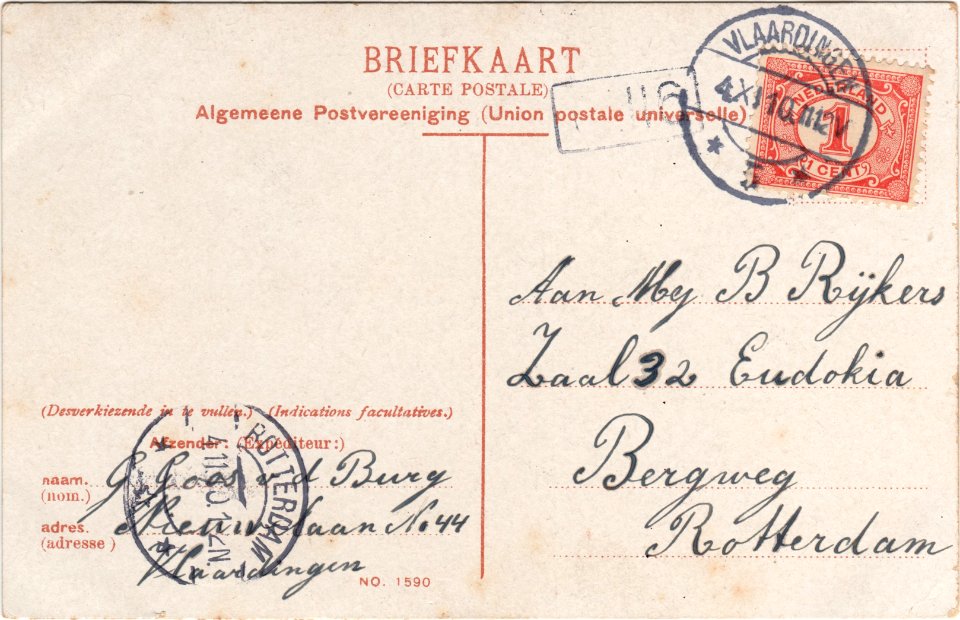 BRIEFKAART
(CARTE POSTALE)
Algemeene Postvereeniging (Union postale universelle)
VLAARDINGEN
4 XI 10 11-12V
3
NEDERLAND
1
1 CENT
Aan Mej B Rÿkers
Zaal 32 Eudokia
Bergweg
Rotterdam
(Desverkiezende in te vullen.) (Indications facultatives.)
Afzender: (Expéditeur:)
naam. G Goos v/d Burg
(nom.)
adres. Nieuwelaan No 44
(adresse)
Vlaardingen
ROTTERDAM
NO. 1590